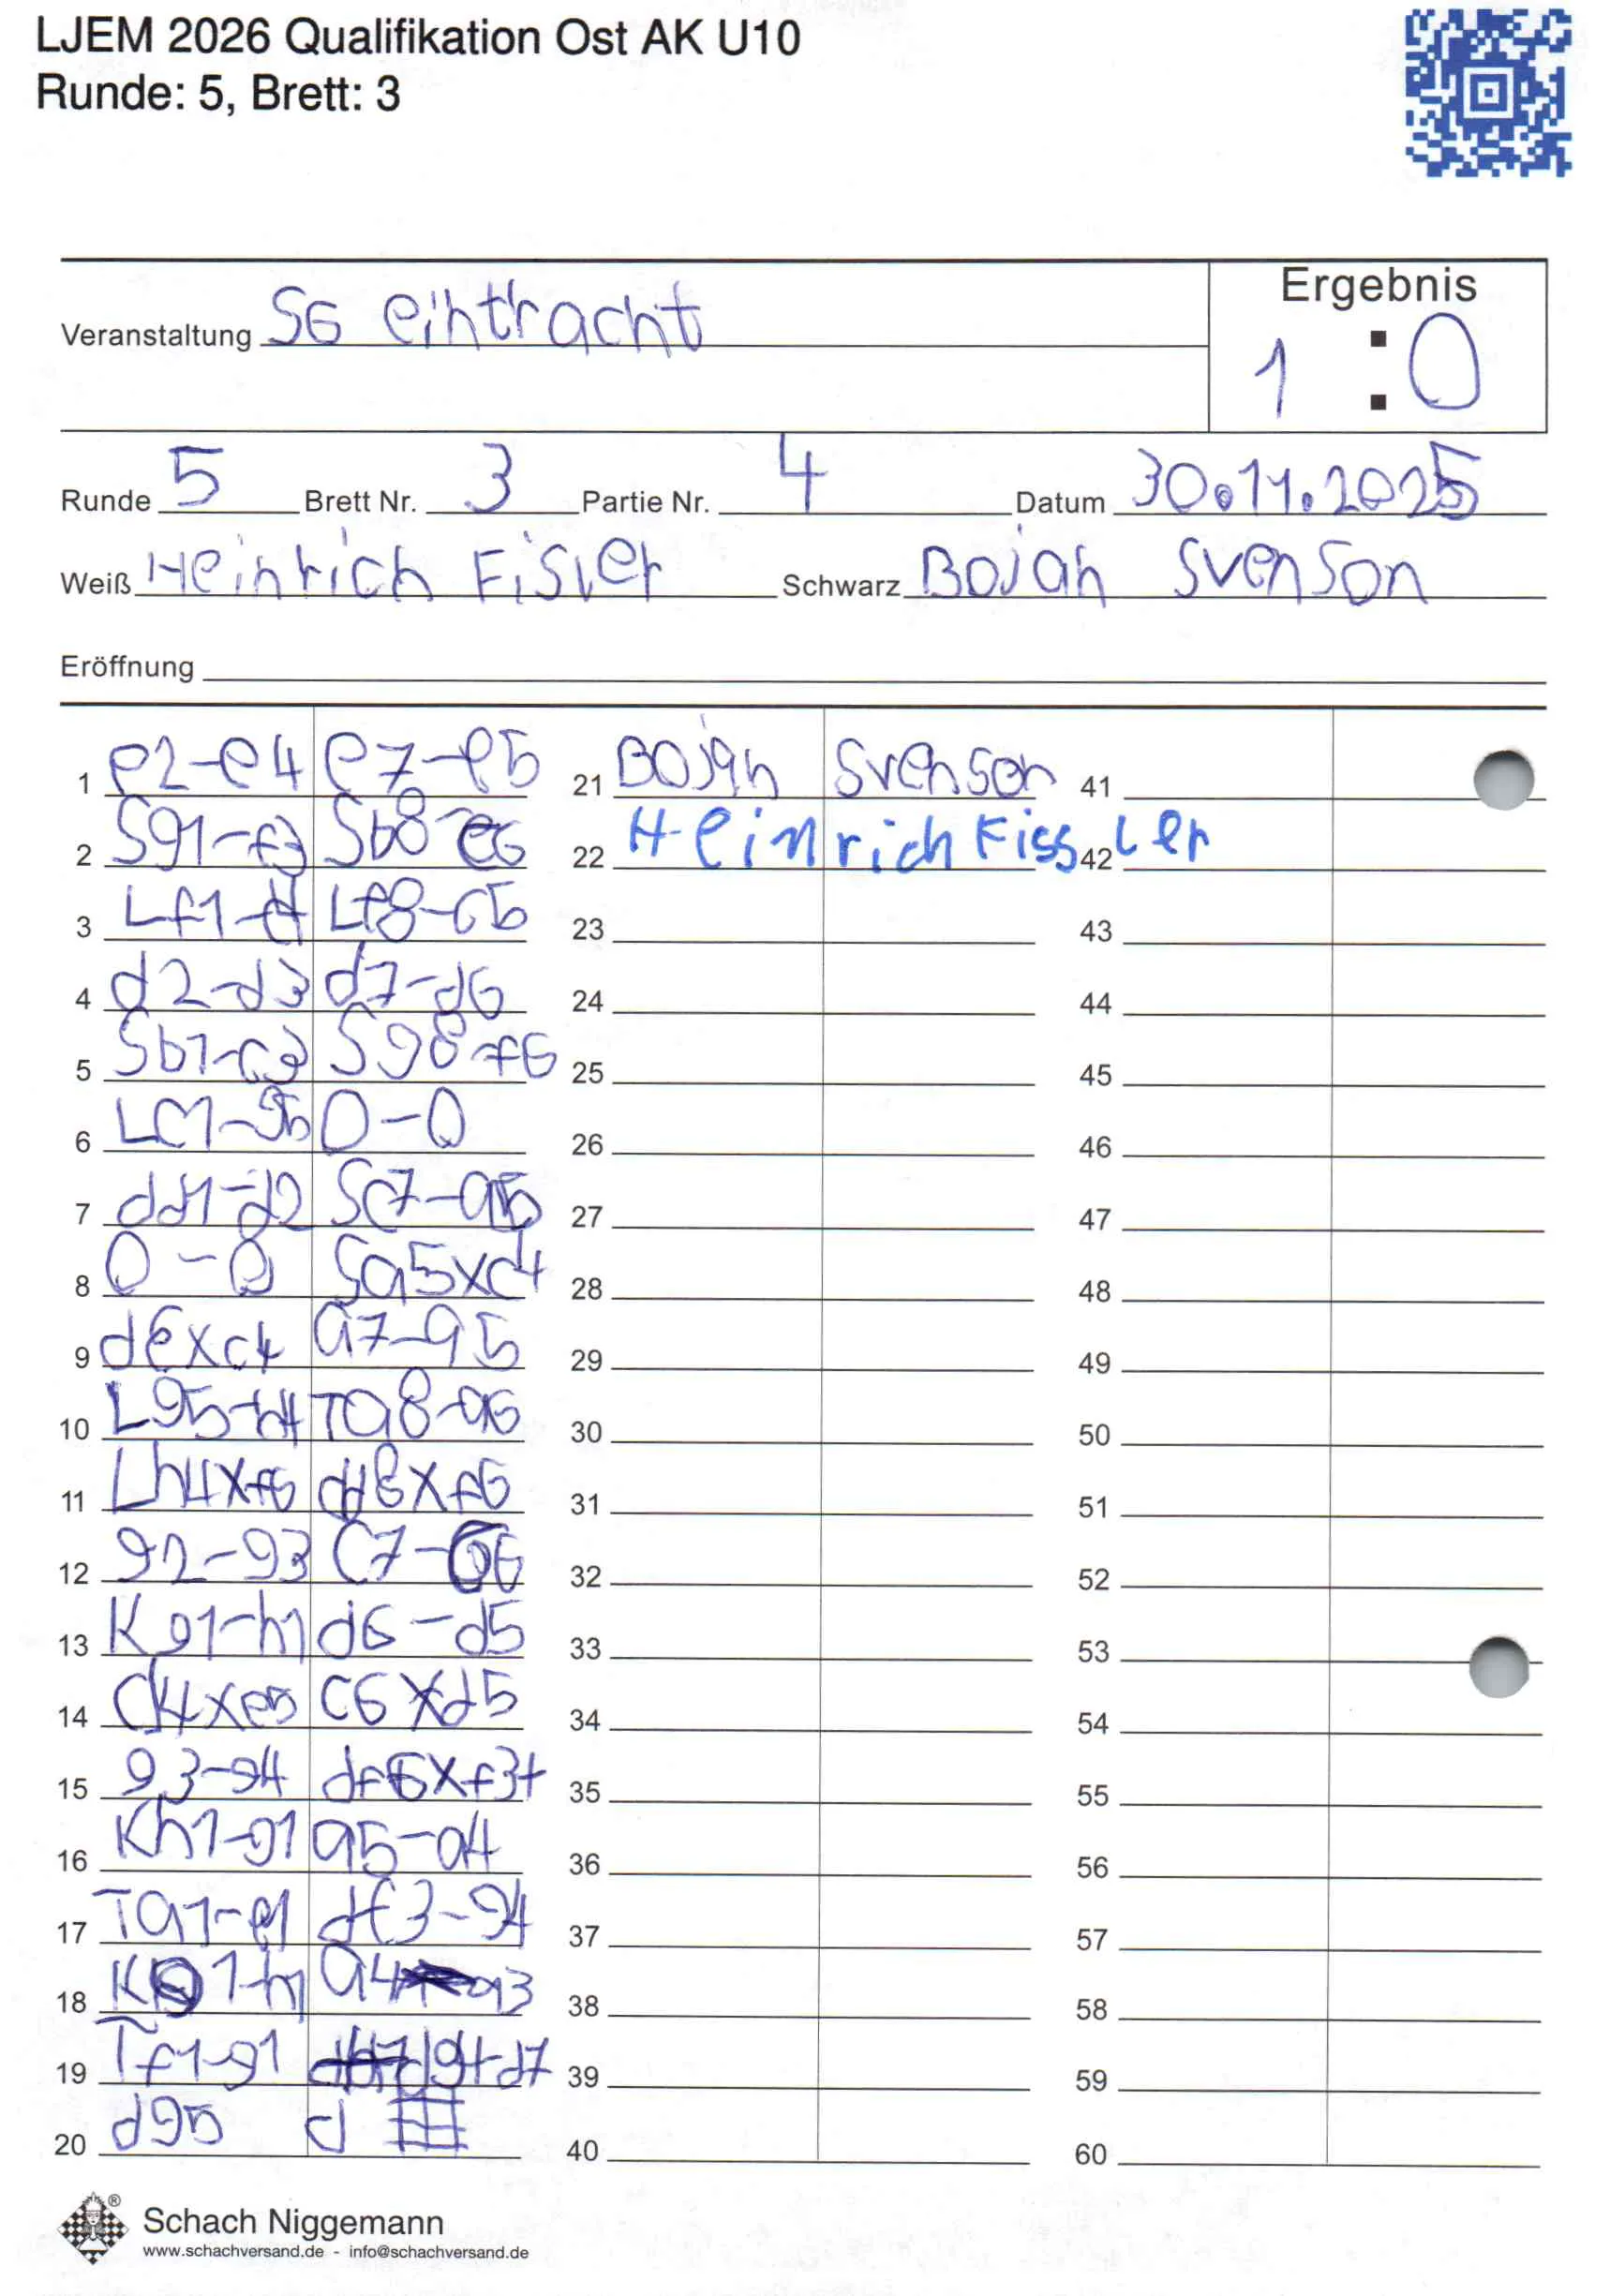 LJEM 2026 Qualifikation Ost AK U10
Runde: 5, Brett: 3
Ergebnis
Veranstaltung SG eintracht
1 : 0
Runde 5 Brett Nr. 3 Partie Nr. 4 Datum 30.11.2025
Weiß Heinrich Fisler Schwarz Bojan Svenson
Eröffnung
1 e2-e4 e7-e5
2 Sg1-f3 Sb8-c6
3 Lf1-c4 Lf8-c5
4 d2-d3 d7-d6
5 Sb1-c3 Sg8-f6
6 Lc1-g5 0-0
7 dd1-d2 Sc7-a5
8 0-0 Sa5xc4
9 xc4 a7-a5
10 Lg5-h4 Ta8-a6
11 Lh4xf6 dd8xf6
12 g2-g3 c7-c6
13 Kg1-h1 d6-d5
14 c6xd5
15 g3-g4 df6xf3+
16 Kh1-g1 a5-a4
17 Ta1-e1 df3-g4
18 Kg1-h1 a4 a3
19 Tf1-g1 dg4-d7
20 dg5 d
21 Bojan Svenson
22 Heinrich Fissler
23
24
25
26
27
28
29
30
31
32
33
34
35
36
37
38
39
40
41
42
43
44
45
46
47
48
49
50
51
52
53
54
55
56
57
58
59
60
Schach Niggemann ®
www.schachversand.de - info@schachversand.de